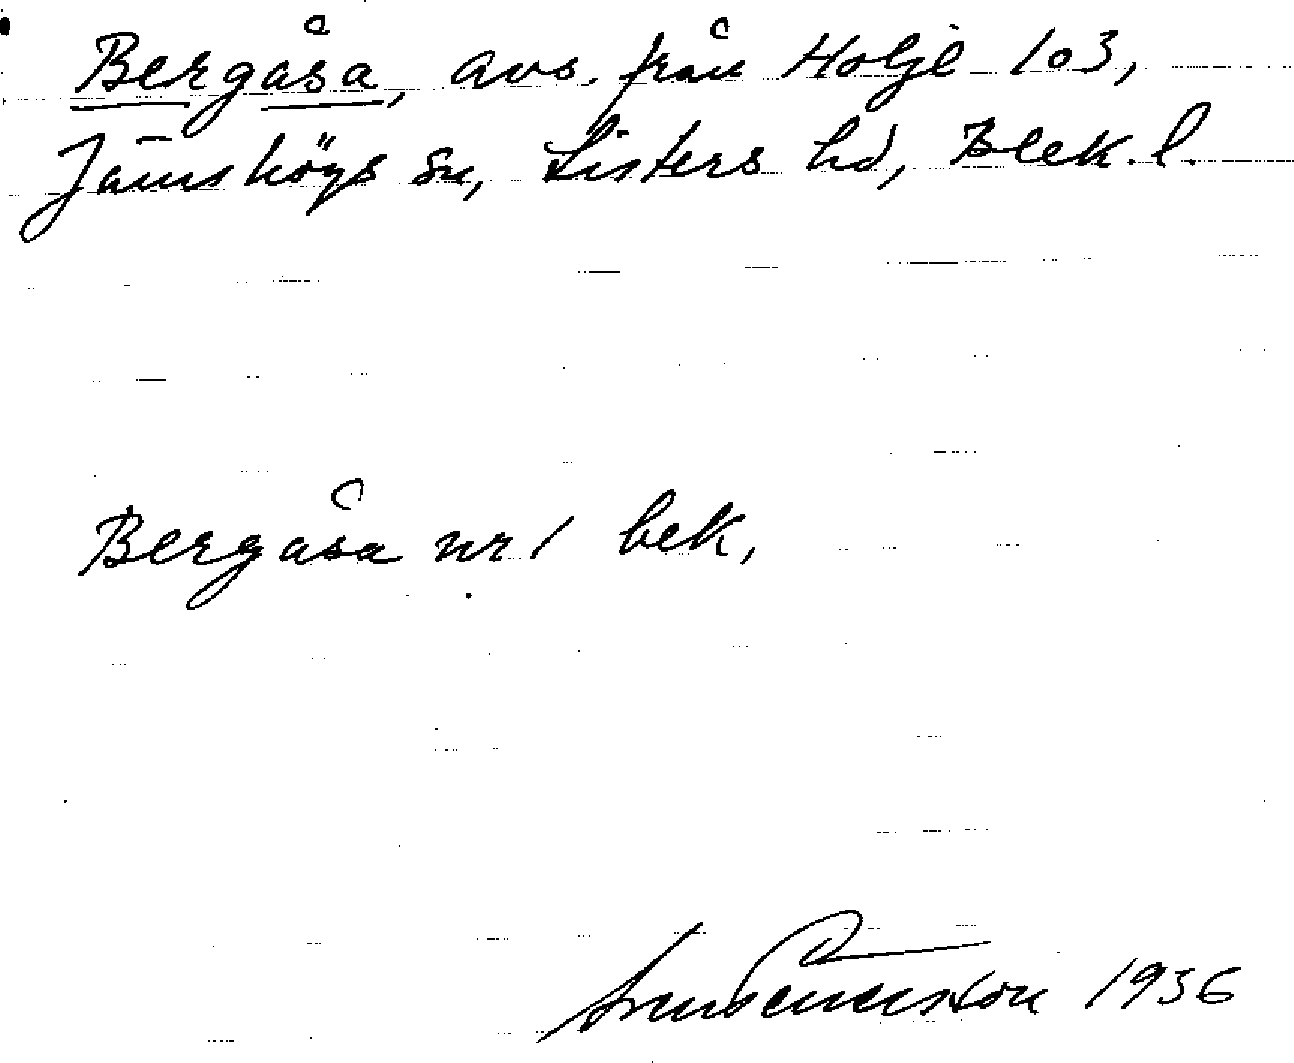 Bergåsa, avs. från Holje 103,
Jämshögs sn, Listers hd, Blek. l.
Bergåsa nr 1 bek,
1936